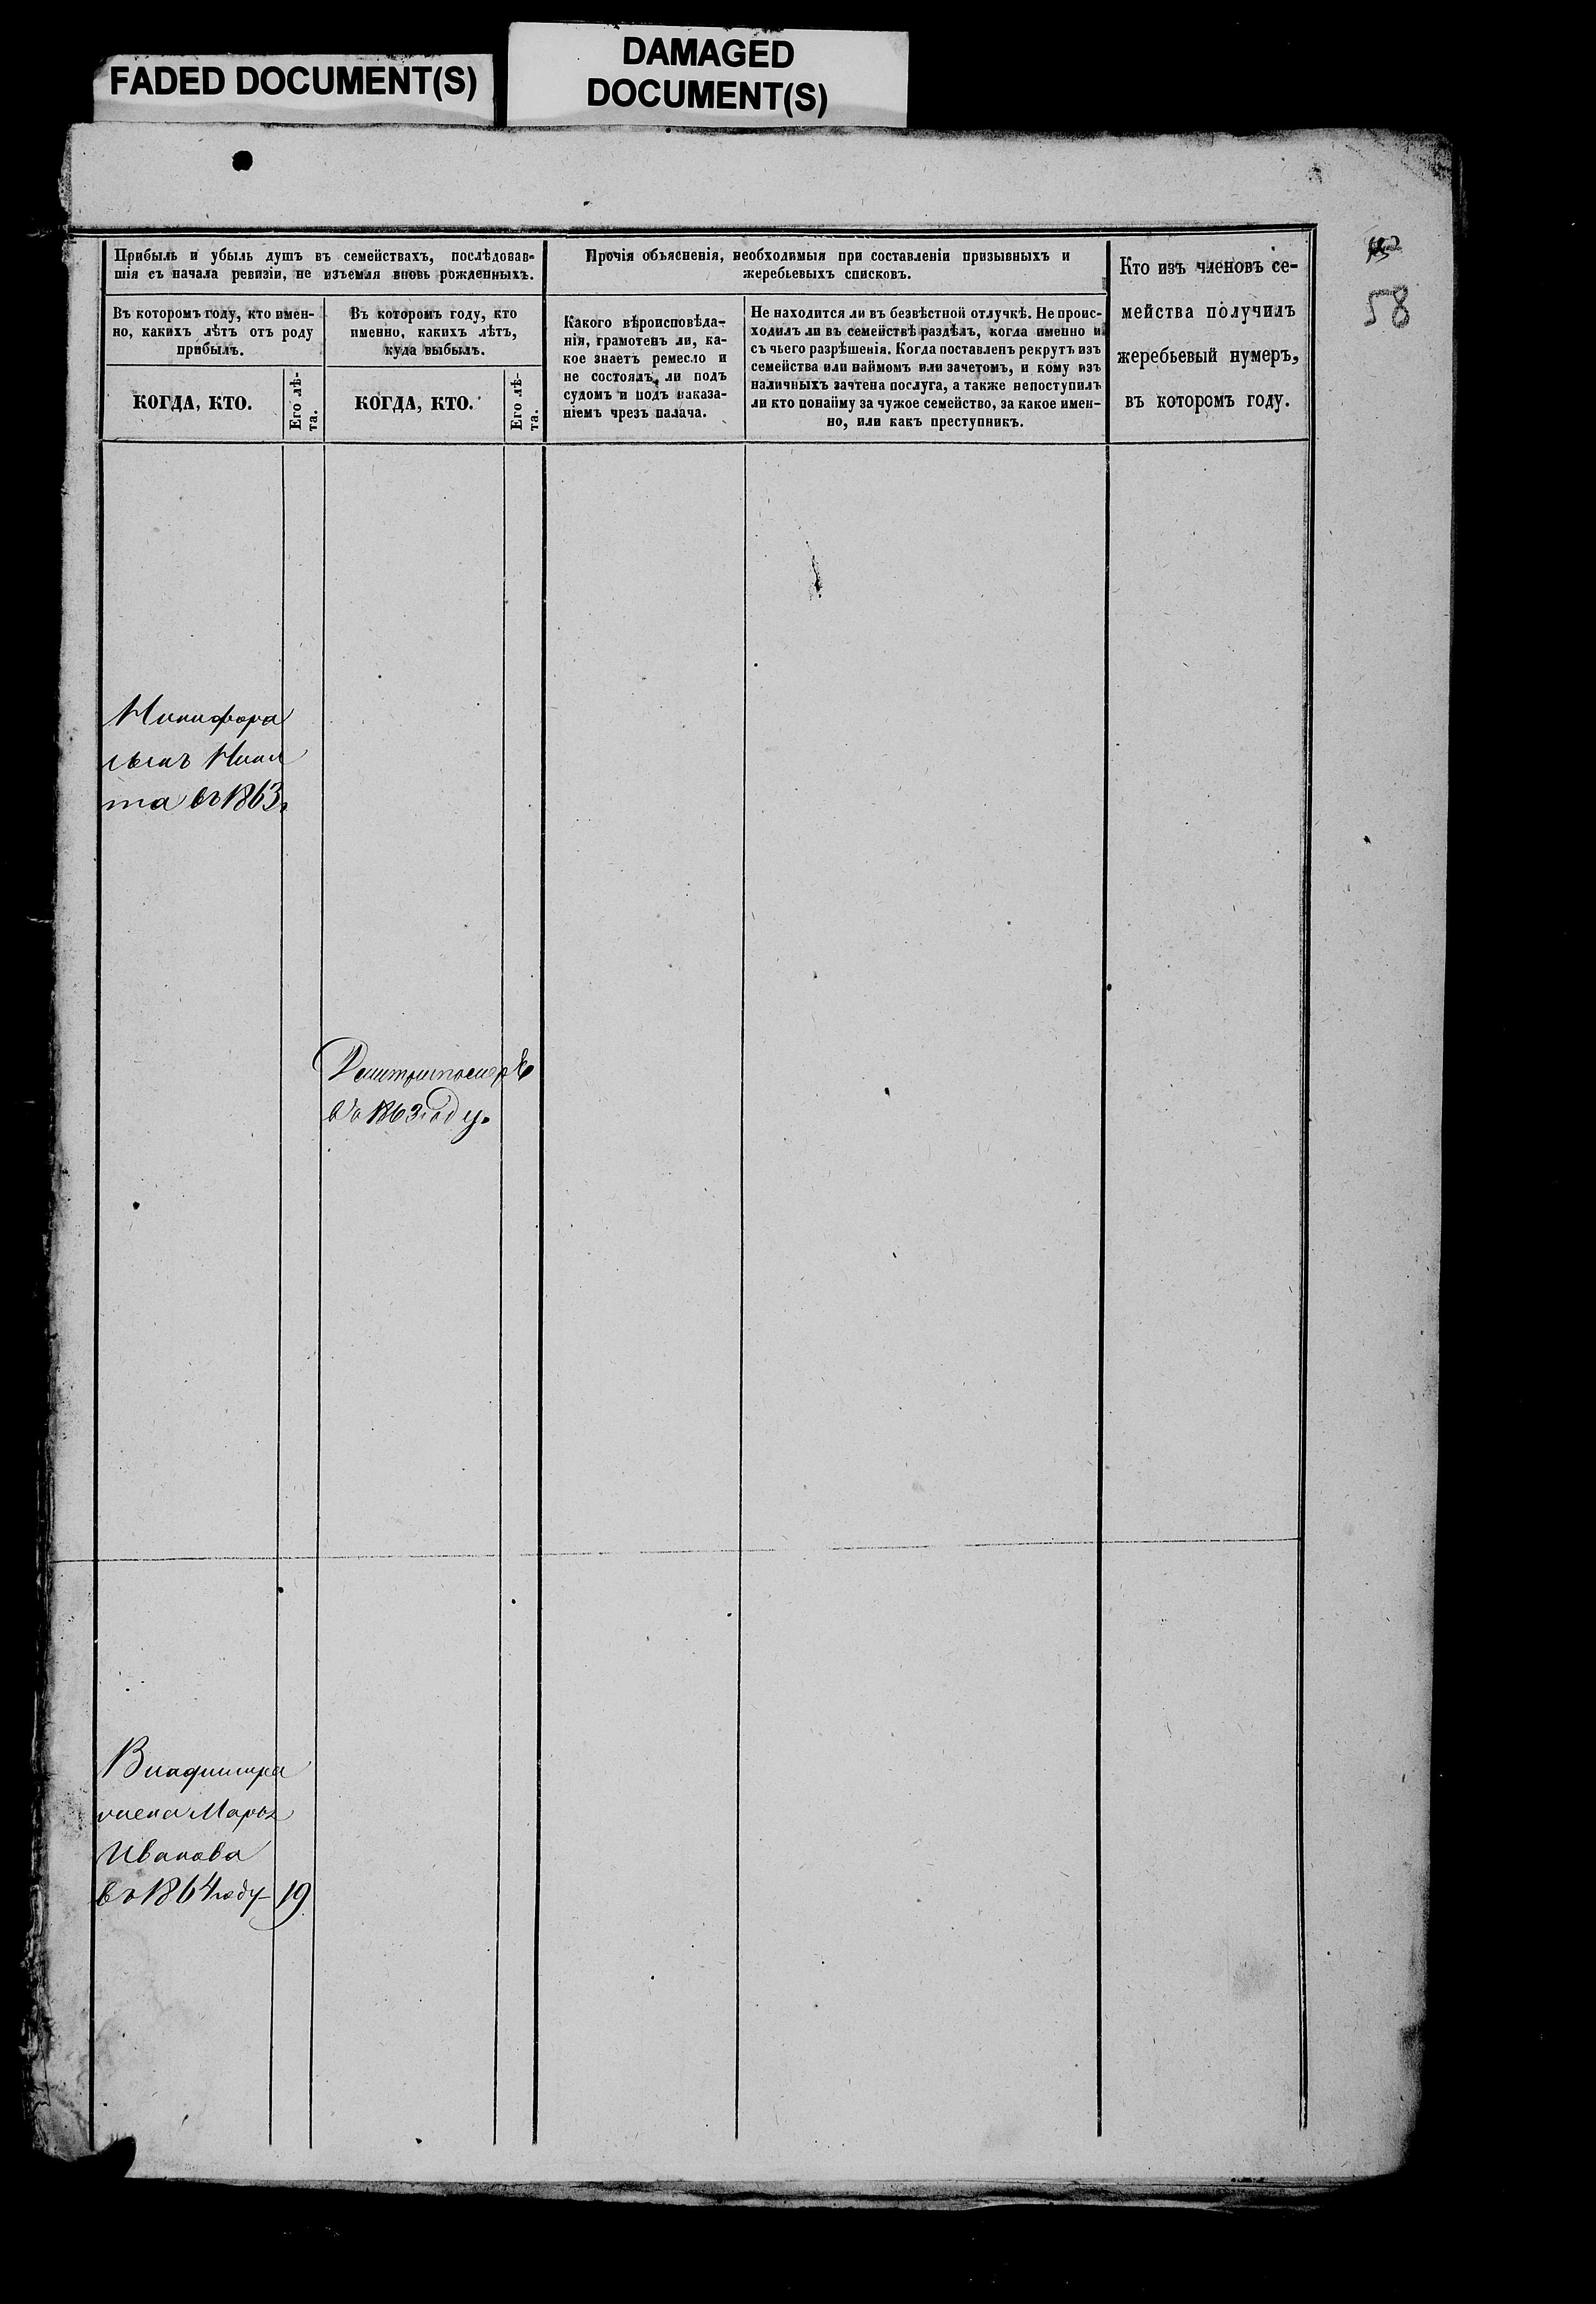 FADED DOCUMENT(S)
DAMAGED
DOCUMENT(S)
58
Прибыль и убыль душъ въ семействахъ, послѣдовав-
шія съ начала ревизіи, не изъемля вновь рожденныхъ.
Въ которомъ году, кто имен-
но, какихъ лѣтъ отъ роду
прибылъ.
КОГДА, КТО.
Его лѣ-
та.
Въ которомъ году, кто
именно, какихъ лѣтъ,
куда выбылъ.
КОГДА, КТО.
Его лѣ-
та.
Прочія объясненія, необходимыя при составленіи призывныхъ и
жеребьевыхъ списковъ.
Какого вѣроисповѣда-
нія, грамотенъ ли, ка-
кое знаетъ ремесло и
не состоялъ ли подъ
судомъ и подъ наказа-
ніемъ чрезъ палача.
Не находится ли въ безвѣстной отлучкѣ. Не проис-
ходилъ ли въ семействѣ раздѣлъ, когда именно и
съ чьего разрѣшенія. Когда поставленъ рекрутъ изъ
семейства или наймомъ или зачетомъ, и кому изъ
наличныхъ зачтена послуга, а также непоступилъ
ли кто понайму за чужое семейство, за какое имен-
но, или какъ преступникъ.
Кто изъ членовъ се-
мейства получилъ
жеребьевый нумеръ,
въ которомъ году.
Никифора
сынъ Ники
та въ 1863г
въ 1863 году.
Владимира
жена Марья
Иванова
въ 1864 году 19